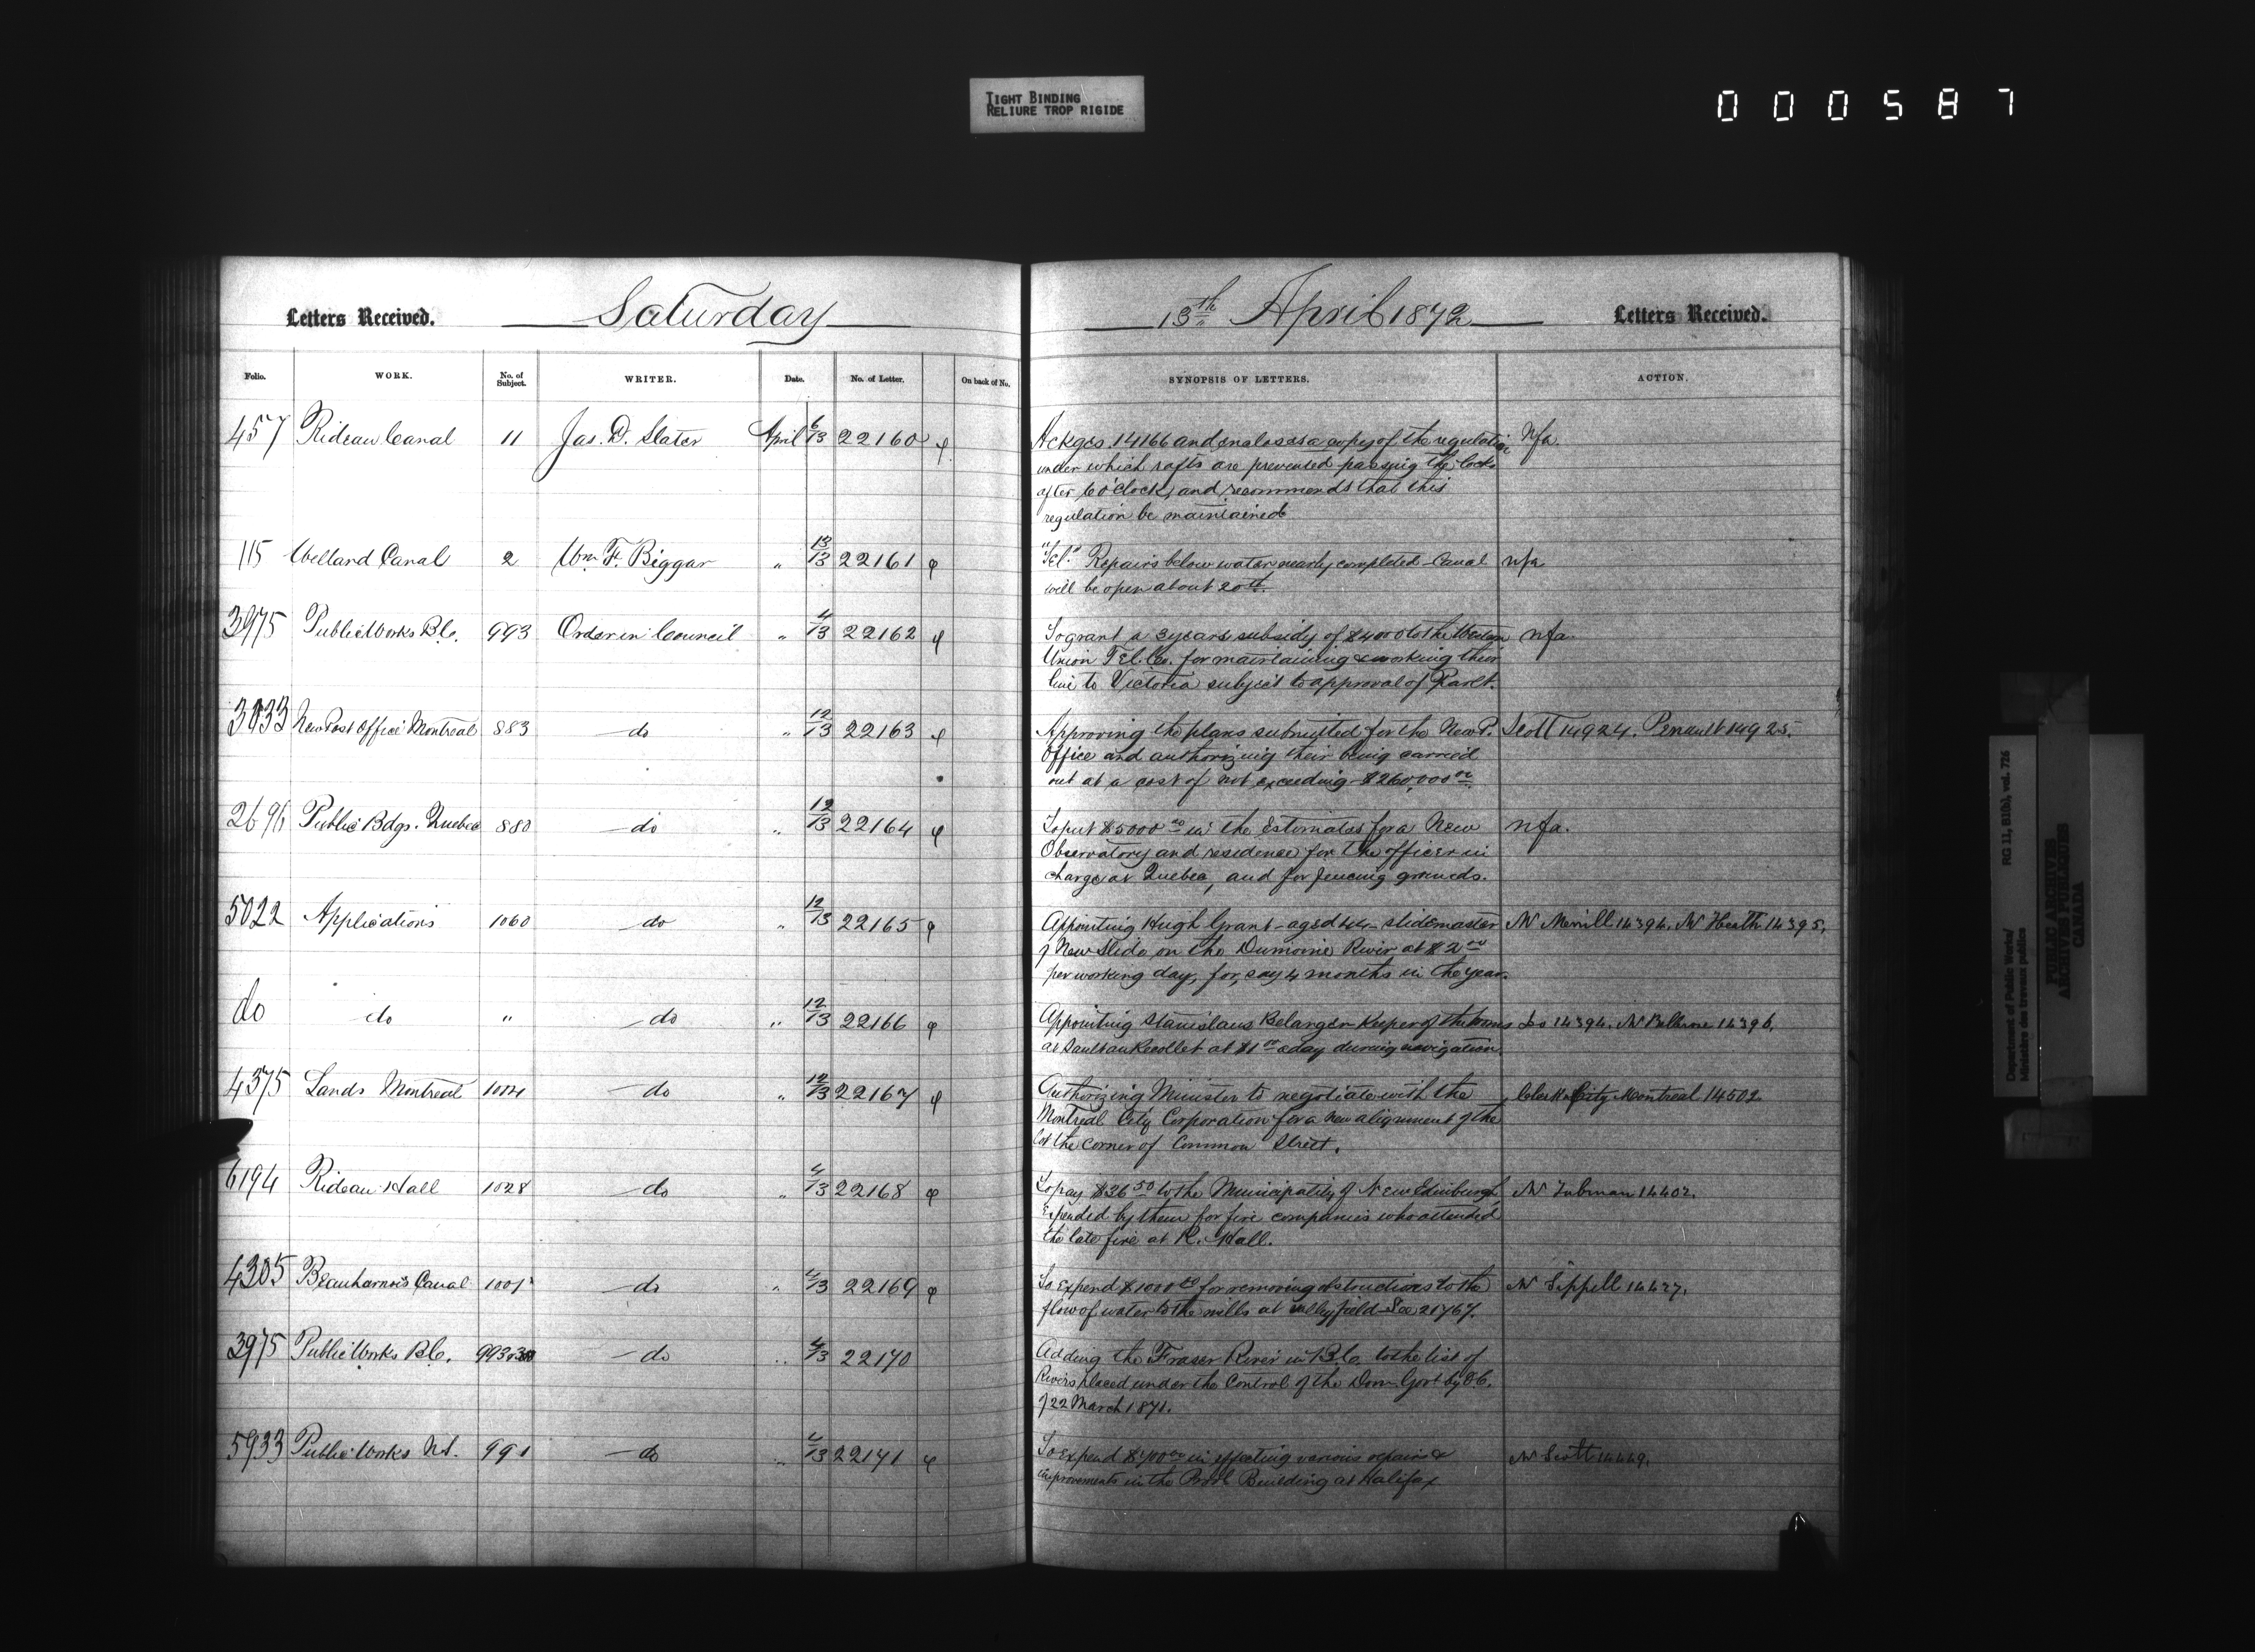 TIGHT BINDING
RELIURE TROP RIGIDE
000587
Letters Received. Saturday 13th April 1872 Letters Received.
Folio. WORK. No. of Subject. WRITER. Date. No. of Letter. On back of No. SYNOPSIS OF LETTERS. ACTION.
457 Rideau Canal 11 Jas. D. Slater April 6/13 22160 φ Ackges 14166 and encloses a copy of the regulation Nfa.
under which rafts are prevented passing the locks
after 6 o'clock, and recommends that this
regulation be maintained
115 Welland Canal 2 Wm. F. Biggar " 13/13 22161 φ "Tel." Repairs below water nearly completed Canal nfa
will be open about 20th.
3975 Public Works B.C. 993 Order in Council " 4/13 22162 φ To grant a 3 years subsidy of $4000 to the Western nfa.
Union Tel. Co. for maintaining & working their
line to Victoria subject to approval of Parlt.
3833 New Post Office Montreal 883 do " 12/13 22163 φ Approving the plans submitted for the New P. Scott 14924. Perrault 14925.
Office and authorizing their being carried
out at a cost of not exceeding $260,000 00
2696 Public Bdgs. Quebec 880 do " 12/13 22164 φ To put $5000 00 in the Estimates for a New nfa.
Observatory and residence for the officer in
charge at Quebec, and for fencing grounds.
5022 Applications 1060 do " 12/13 22165 φ Appointing Hugh Grant - aged 44 - slidemaster Mr Merrill 14394. Mr Heath 14395.
of New Slide on the Dumoine River at $2 00
per working day, for, say 4 months in the year.
do do " do " 12/13 22166 φ Appointing Stanislaus Belanger Keeper of the booms do 14394. Mr 14396.
at Sault au Recollet at $1 00 a day during navigation.
4375 Lands Montreal 1004 do " 12/13 22167 φ Authorizing Minister to negotiate with the Clerk City Montreal 14502
Montreal City Corporation for a new alignment of the
lot the corner of Common Street.
6194 Rideau Hall 1028 do " 4/13 22168 φ To pay $36 50 to the Municipality of New Edinburgh Mr Tubman 14402.
Expended by them for fire companies who attended
the late fire at R. Hall.
4305 Beauharnois Canal 1001 do " 4/13 22169 φ To expend $1000 00 for removing obstructions to the Mr Sippell 14427.
flow of water to the mills at valleyfield See 21767.
3975 Public Works B.C. 993 do " 4/13 22170 Adding the Fraser River in B.C. to the list of
Rivers placed under the Control of the Dom. Govt by O.C.
of 22 March 1871.
5933 Public Works N.S. 991 do " 4/13 22171 φ To expend in effecting various repairs & Mr Scott 14449.
improvements in the Provl Building at Halifax
Department of Public Works/
Ministère des travaux publics
RG 11, B1(b), vol. 726
PUBLIC ARCHIVES
ARCHIVES PUBLIQUES
CANADA